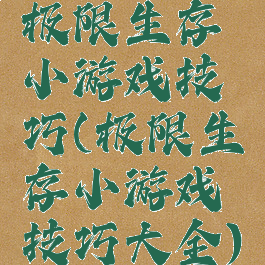 极限生存
小游戏技
巧(极限生
存小游戏
技巧大全)